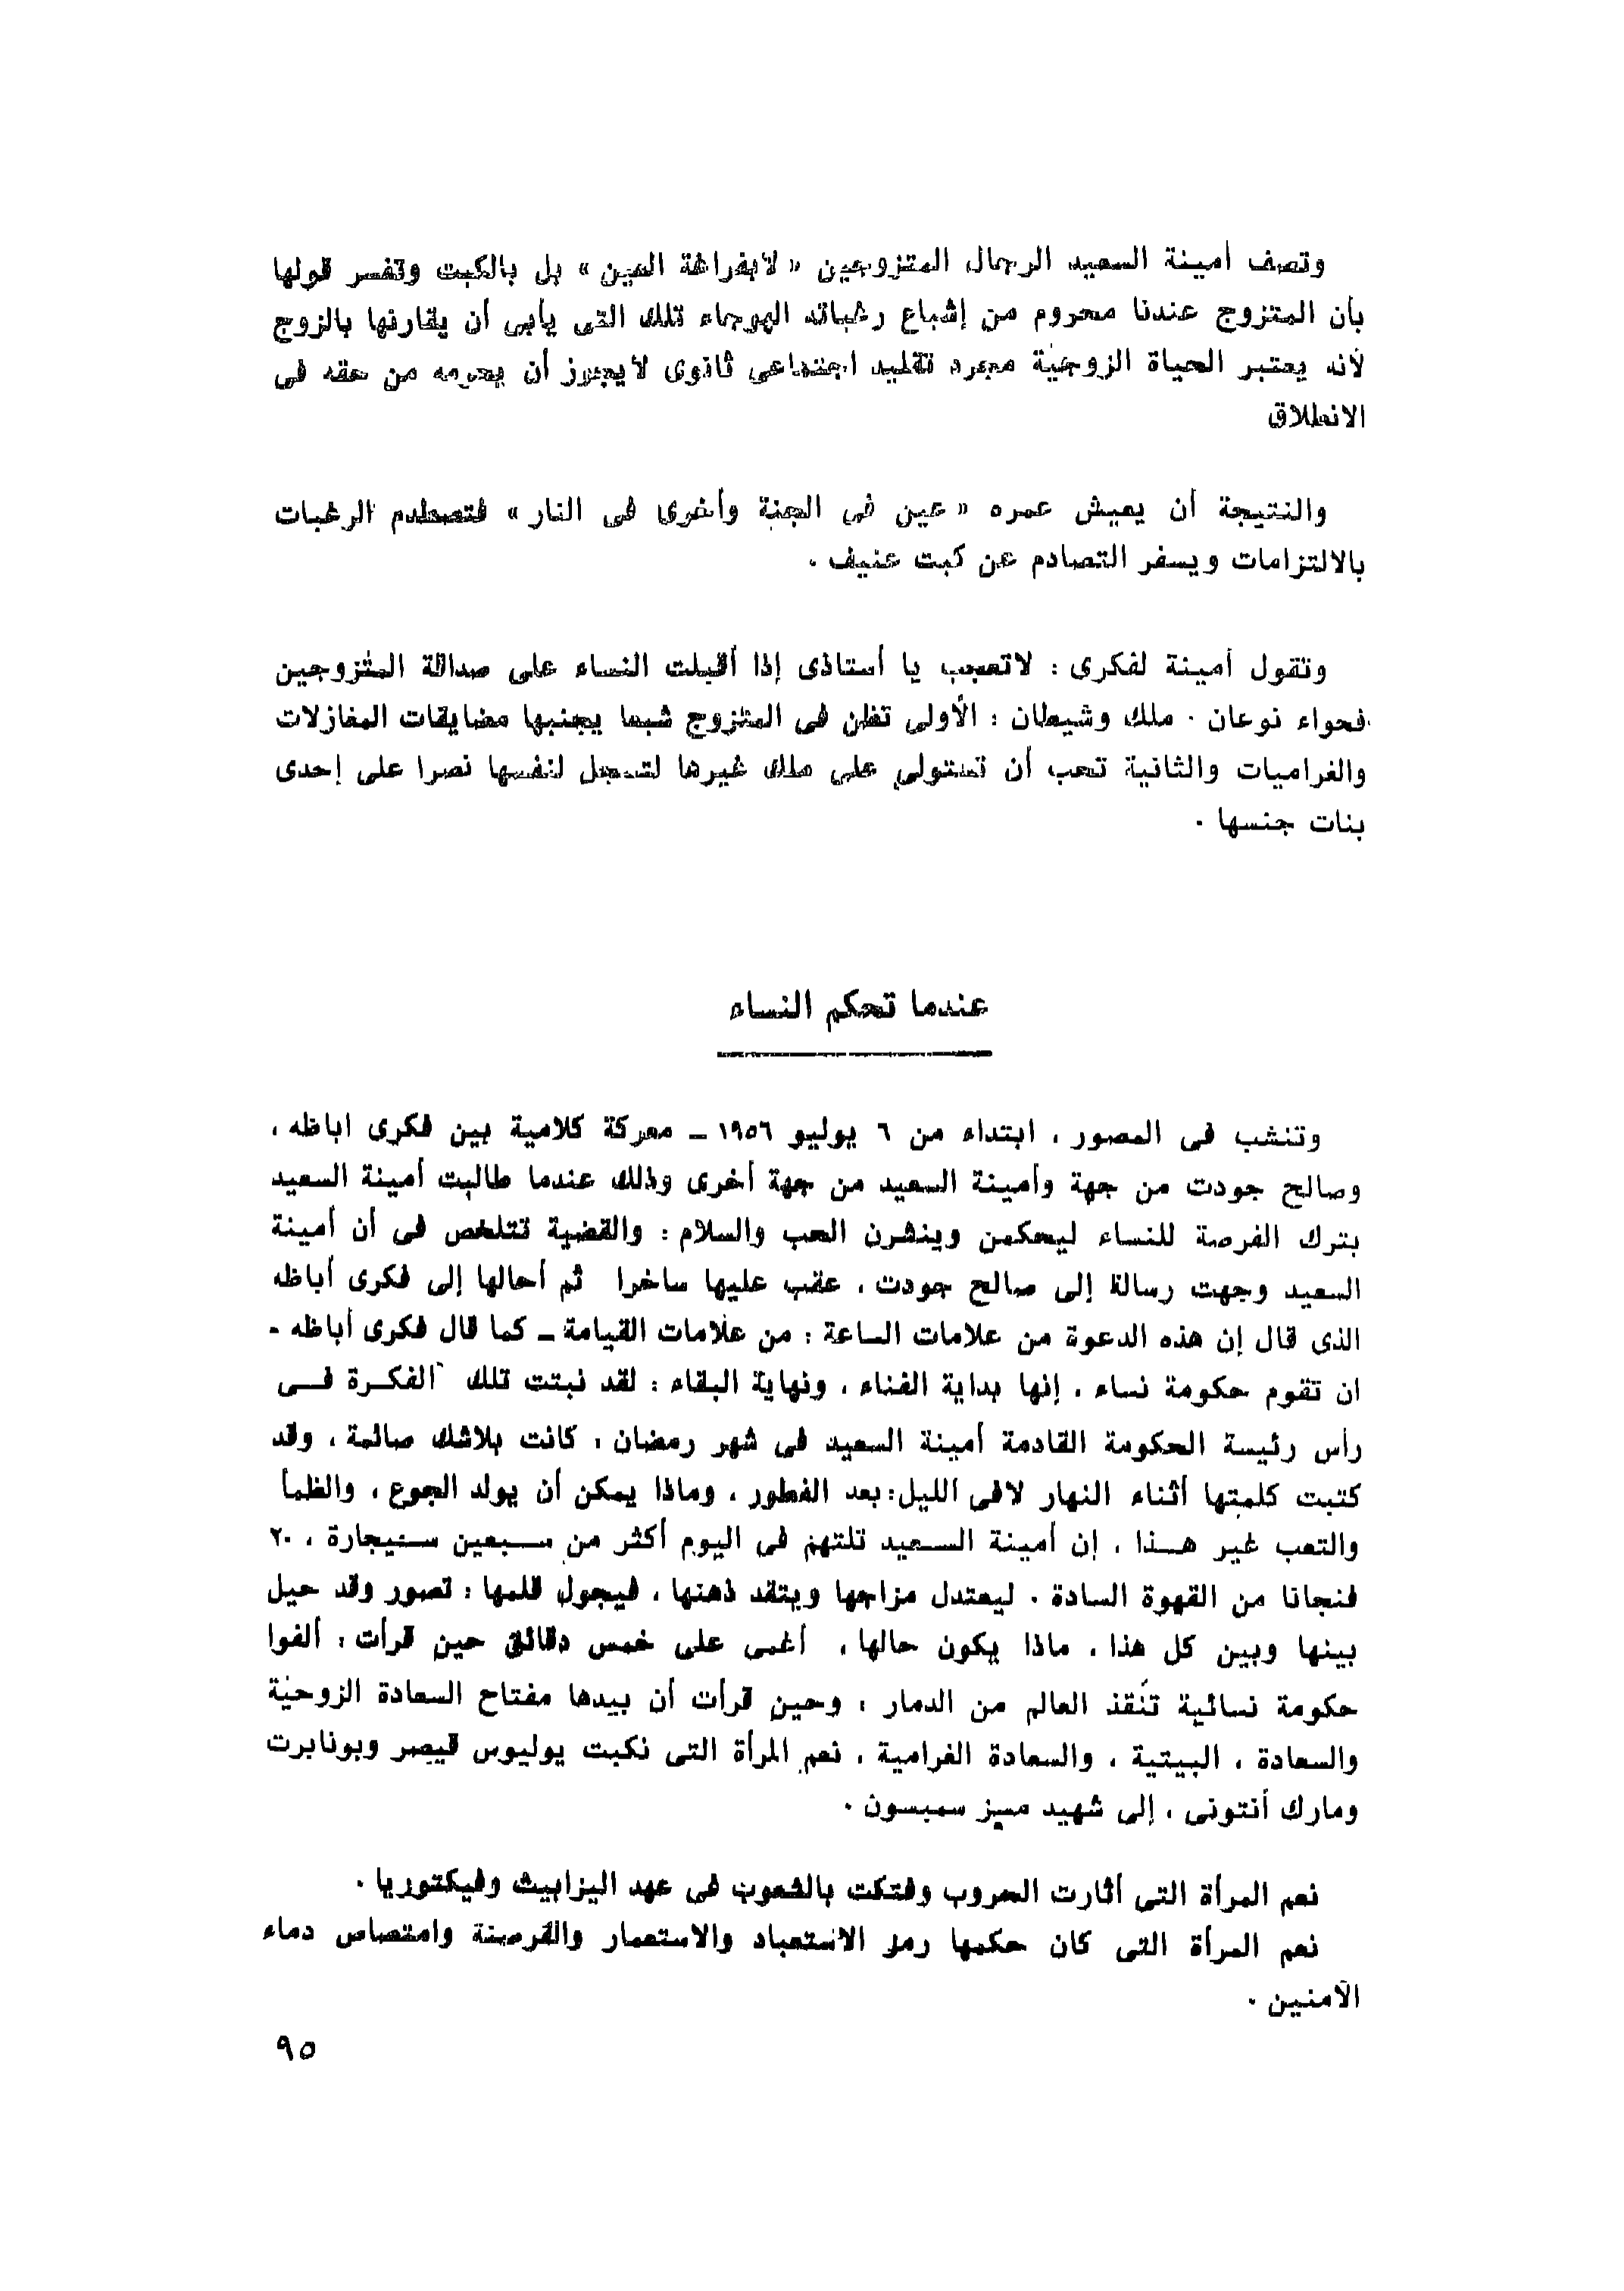 وتصف أمينة السعيد الرجال المتزوجين « لابفراغة العين » بل بالكبت وتفسر قولها
بأن المتزوج عندنا محروم من إشباع رغباته الهوجاء تلك التى يأبى أن يقارنها بالزوج
لأنه يعتبر الحياة الزوجية مجرد تقليد اجتماعى ثانوى لايجوز أن يحرمه من حقه فى
الانطلاق
والنتيجة أن يعيش عمره « عين فى الجنة وأخرى فى النار » فتصطدم الرغبات
بالالتزامات ويسفر التصادم عن كبت عنيف .
وتقول أمينة لفكرى : لاتعجب يا أستاذى إذا أقبلت النساء على صداقة المتزوجين
فحواء نوعان . ملك وشيطان : الأولى تظن فى المتزوج شبعا يجنبها مضايقات المغازلات
والغراميات والثانية تحب أن تستولى على ملك غيرها لتسجل لنفسها نصرا على إحدى
بنات جنسها .
عندما تحكم النساء
وتنشب فى المصور ، ابتداء من ٦ يوليو ١٩٥٦ – معركة كلامية بين فكرى اباظه ،
وصالح جودت من جهة وأمينة السعيد من جهة أخرى وذلك عندما طالبت أمينة السعيد
بترك الفرصة للنساء ليحكمن وينشرن الحب والسلام : والقضية تتلخص فى أن أمينة
السعيد وجهت رسالة إلى صالح جودت ، عقب عليها ساخرا ثم أحالها إلى فكرى أباظه
الذى قال إن هذه الدعوة من علامات الساعة : من علامات القيامة – كما قال فكرى أباظه -
ان تقوم حكومة نساء ، إنها بداية الفناء ، ونهاية البقاء : لقد نبتت تلك الفكـرة فــى
رأس رئيسة الحكومة القادمة أمينة السعيد فى شهر رمضان ، كانت بلاشك صائمة ، وقد
كتبت كلمتها أثناء النهار لافى الليل: بعد الفطور ، وماذا يمكن أن يولد الجوع ، والظمأ
والتعب غير هــذا ، إن أمينة السـعيد تلتهم فى اليوم أكثر من ســبعين سـيجارة ، ٢٠
فنجانا من القهوة السادة . ليعتدل مزاجها ويتقد ذهنها ، فيجول قلمها : تصور وقد حيل
بينها وبين كل هذا ، ماذا يكون حالها ، أغمى على خمس دقائق حين قرأت : ألفوا
حكومة نسائية تنقذ العالم من الدمار ، وحين قرأت أن بيدها مفتاح السعادة الزوحية
والسعادة ، البيتية ، والسعادة الغرامية ، نعم المرأة التى نكبت يوليوس قيصر وبونابرت
ومارك أنتونى ، إلى شهيد مسز سمبسون .
نعم المرأة التى أثارت الحروب وفتكت بالشعوب فى عهد اليزابيث وفيكتوريا .
نعم المرأة التى كان حكمها رمز الاستعباد والاستعمار والقرصنة وامتصاص دماء
الآمنين .
٩٥